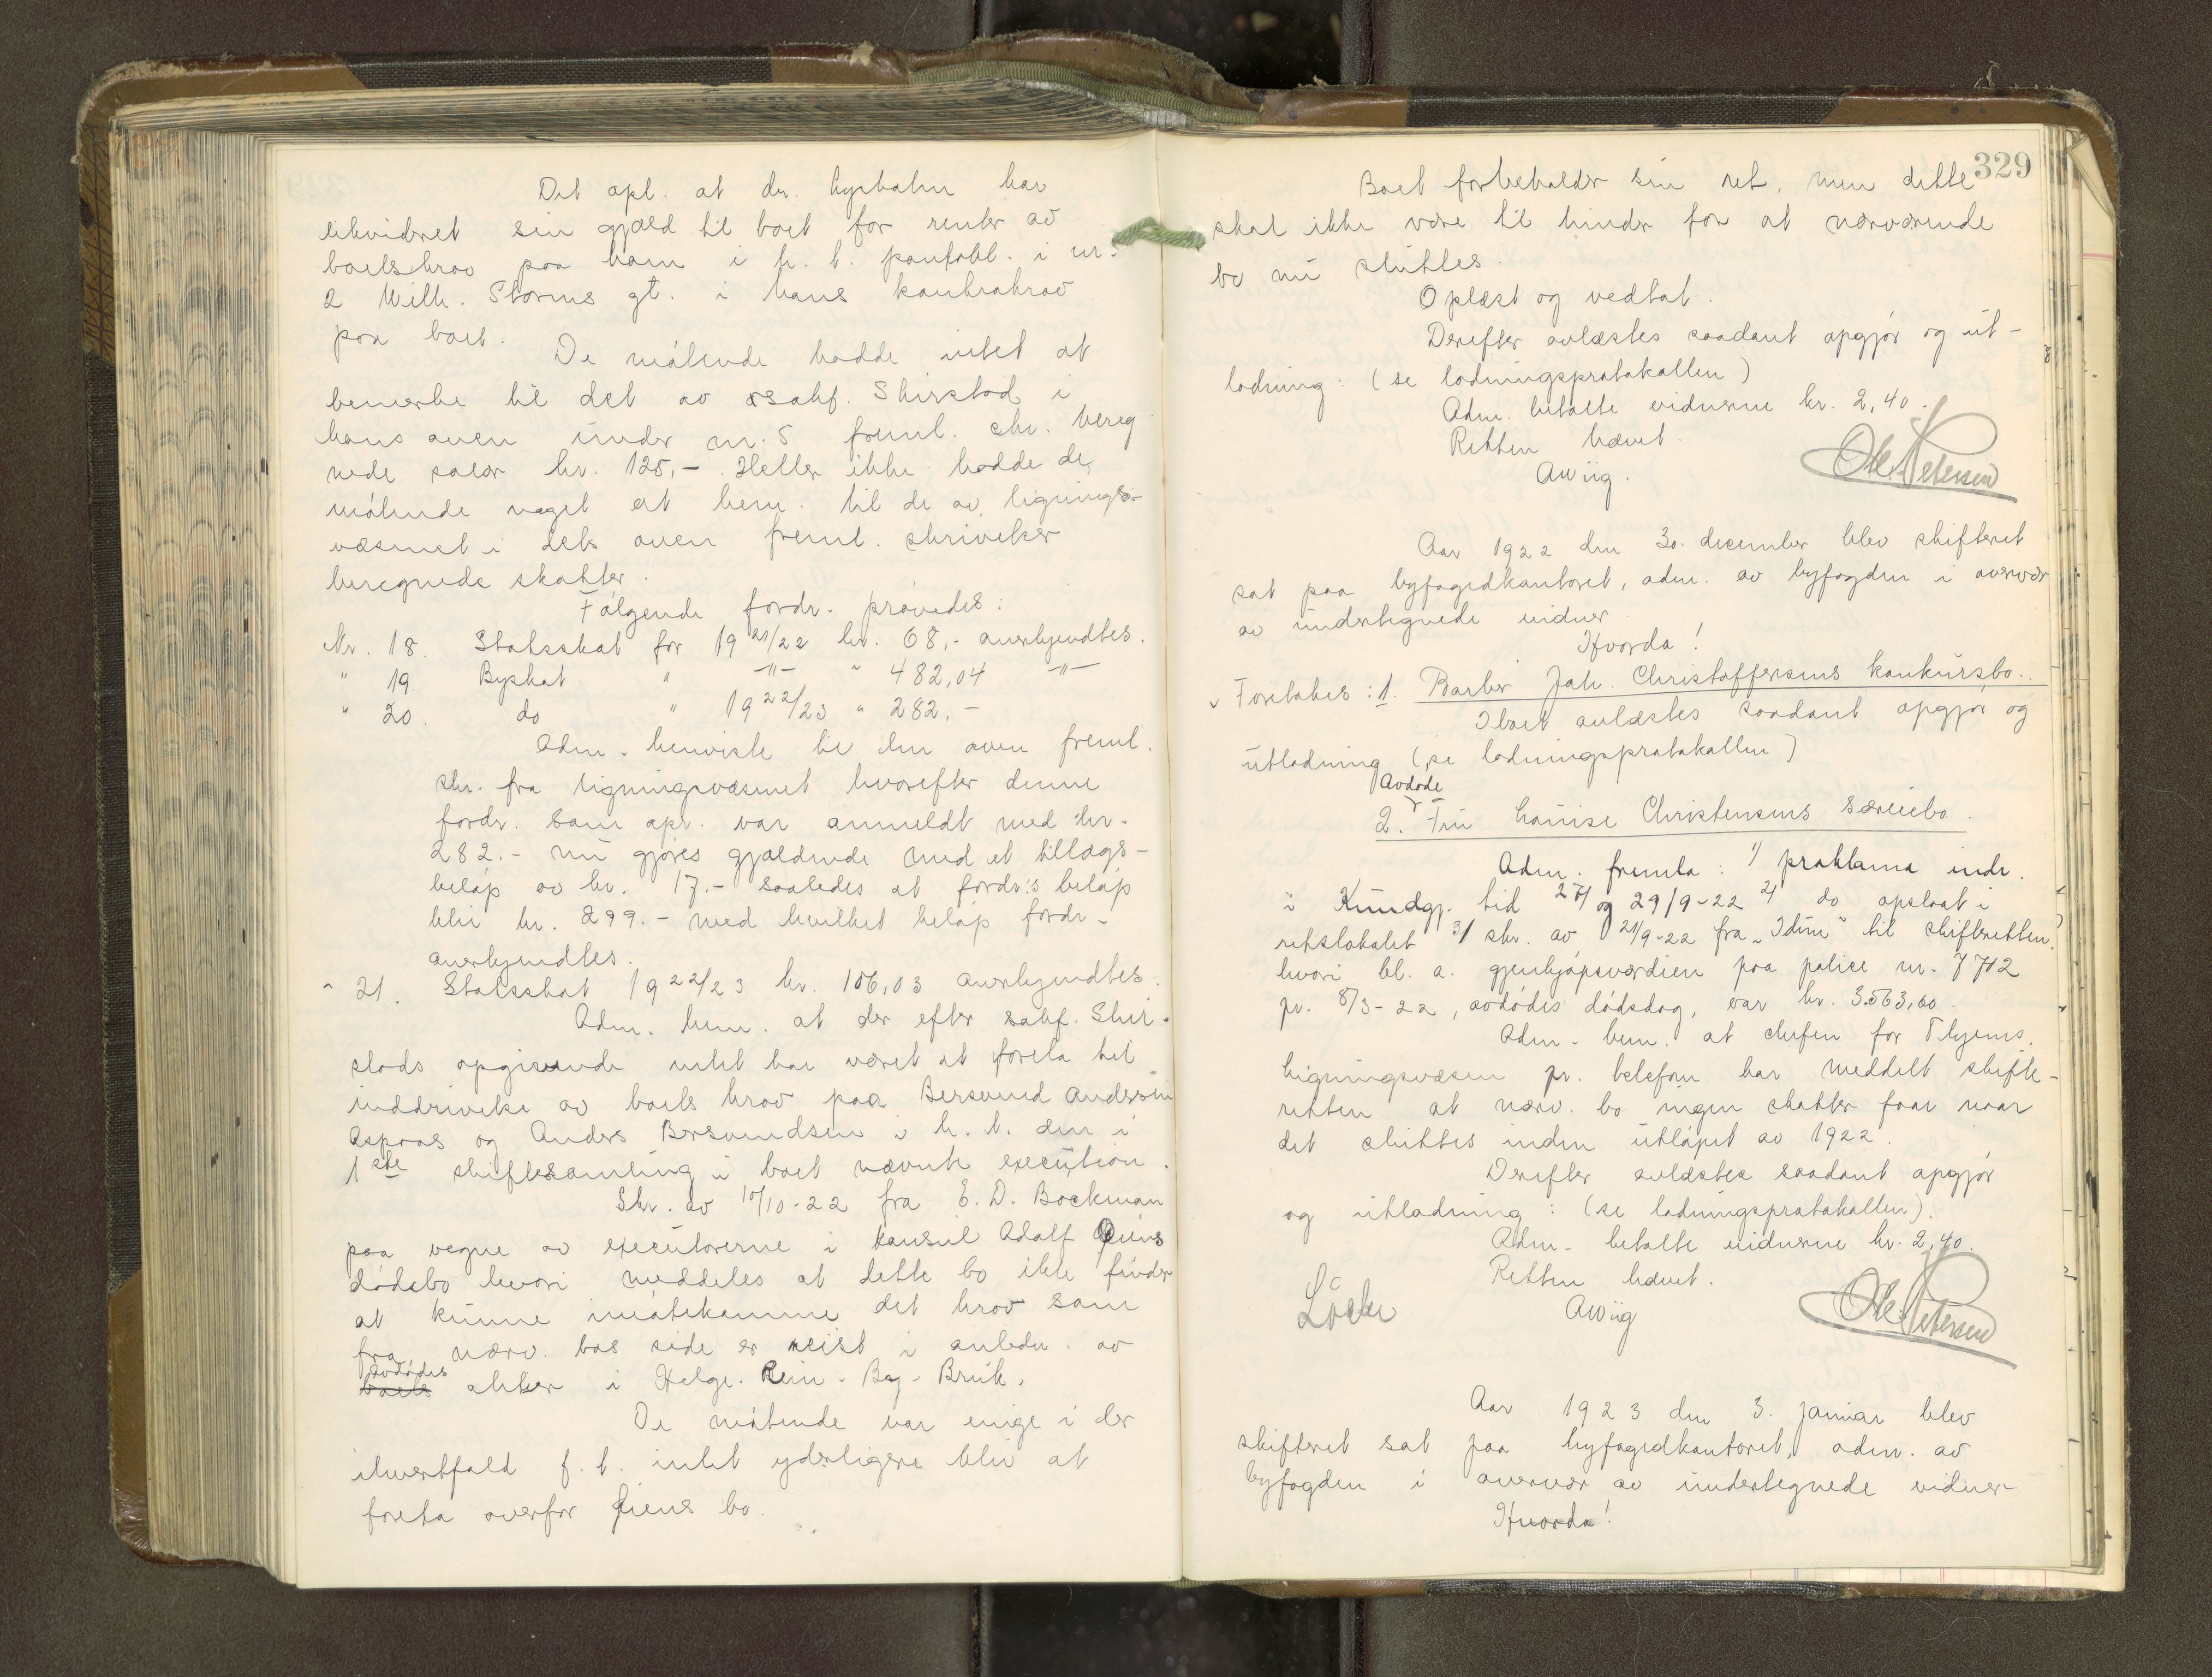 Det opl. at dr. Lysholm har
likvideret sin gjæld til boet for renter av
boets krav paa ham i h. t. pantobl. i nr.
2 Wilh. Storms gt. i hans kontrakrav
paa boet.
De møtende hadde intet at
bemerke til det av osakf. Skirstad i
hans oven under nr. 5 freml. skr. bereg
nede salær kr. 125,- Heller ikke hadde de
møtende noget at bem. til de av lignings-
væsenet i dets oven freml. skrivelser
beregnede skatter.
Følgende fordr. prøvedes:
Nr. 18. Statsskat for 19 21/22 kr. 68,- anerkjendtes.
" 19. Byskat " -"- " 482,04 -"-
" 20. do " 19 22/23 " 282.-
Adm. henviste til den oven freml.
skr. fra ligningsvæsenet hvorefter denne
fordr. som opr. var anmeldt med kr.
282.- nu gjøres gjældende med et tillægs-
beløp av kr. 17.- saaledes at fordr:s beløp
blir kr. 299.- med hvilket beløp fordr.
anerkjendtes.
" 21. Statsskat 19 22/23 kr. 106,03 anerkjendtes.
Adm. bem. at der efter sakf. Skir-
stads opgivende intet har været at foreta til
inddrivelse av boets krav paa Bersvend Andersen
Aspaas og Anders Bersvendsen i h. t. den i
1ste skiftesamling i boet nævnte execution.
Skr. av 10/10-22 fra E. D. Bockman
paa vegne av executorerne i konsul Adolf Øiens
dødsbo hvori meddeles at dette bo ikke finder
at kunne imøtekomme det krav som
fra nærv. bos side er reist i anledn. av
avdødes
boets aktier i Helge-Rein-By-Bruk.
De møtende var enige i der
ihvertfald f. t. intet yderligere blir at
foreta overfor Øiens bo.
329
Boet forbeholder sin ret, men dette
skal ikke være til hinder for at nærværende
bo nu sluttes.
Oplæst og vedtat.
Derefter avlæstes saadant opgjør og ut-
lodning: (se lodningsprotokollen)
Adm. betalte vidnerne kr. 2,40.
Retten hævet.
AWiig. Ole Petersen
Aar 1922 den 30. december blev skifteret
sat paa byfogedkontoret, adm. av byfogden i overvær
av undertegnede vidner.
Hvorda!
Foretokes: 1. Barber Joh. Christoffersens konkursbo.
I boet avlæstes saadant opgjør og
utlodning (se lodningsprotokollen)
Avdøde
2. Fru Louise Christensens særeiebo.
Adm. fremla: 1) proklama indr.
i Kundgj. tid 27/ og 29/9-22 2) do opslaat i
retslokalet 3) skr. av 21/9-22 fra "Idun" til skifteretten,
hvori bl. a. gjenkjøpsværdien paa police nr. 7712
pr. 8/3-22, avdødes dødsdag, var kr. 3.563,60.
Adm. bem. at chefen for Thjems.
ligningsvæsen pr. telefon har meddelt skifte-
retten at nærv. bo ingen skatter faar naar
det sluttes inden utløpet av 1922.
Derefter avlæstes saadant opgjør
og utlodning: (se lodningsprotokollen).
Adm. betalte vidnerne kr. 2,40.
Retten hævet.
AWiig Ole Petersen
Aar 1923 den 3. januar blev
skifteret sat paa byfogedkontoret, adm. av
byfogden i overvær av undertegnede vidner
Hvorda!